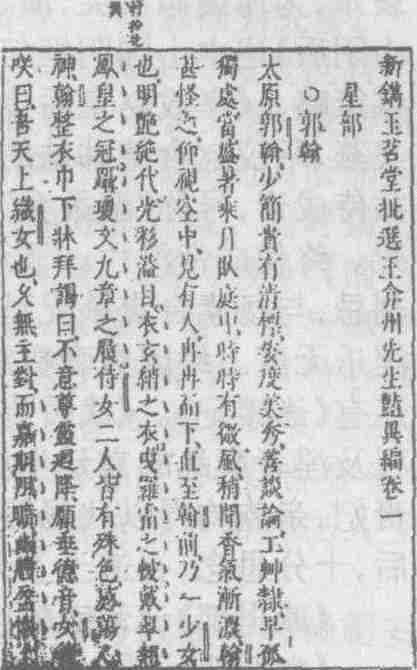 新鐫玉茗堂批選王弇州先生豔異編卷一
星部
○郭翰
太原郭翰少簡貴有清標姿度美秀善談論工艸隸早孤
獨處當盛暑乘月臥庭中時時有微風稍聞香氣漸濃翰
甚怪之仰視空中見有人冉冉而下直至翰前乃一少女
也明艷絶代光彩溢目衣玄綃之衣曳羅霜之帔戴翠翹
鳳皇之冠躡瓊文九章之履侍女二人皆有殊色感蕩心
神翰整衣巾下牀拜謁曰不意尊靈迥降願垂德音女微
咲曰吾天上織女也久無主對而嘉期阻曠幽態盈懷上